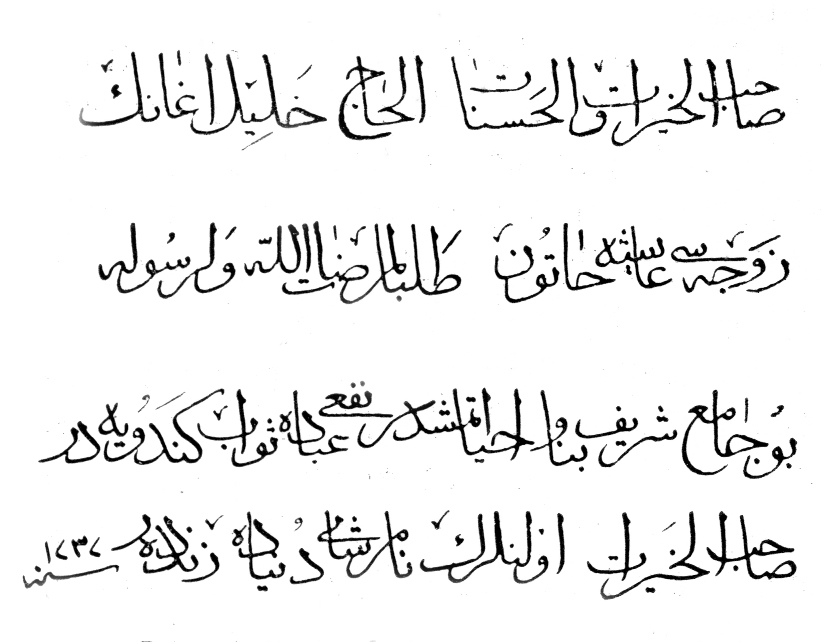 صاحب الخيرات والحسنات الحاج خليل اغانك
زوجه سى عايشه خاتون طلبا لمرضات الله ولرسوله
بو جامع شريف بنا و احيا ايتمشدر نفعى عباده ثواب كندويه در
صاحب الخيرات اولنلرك نام و شانى دنياده زنده در سنه ١٢٣٧